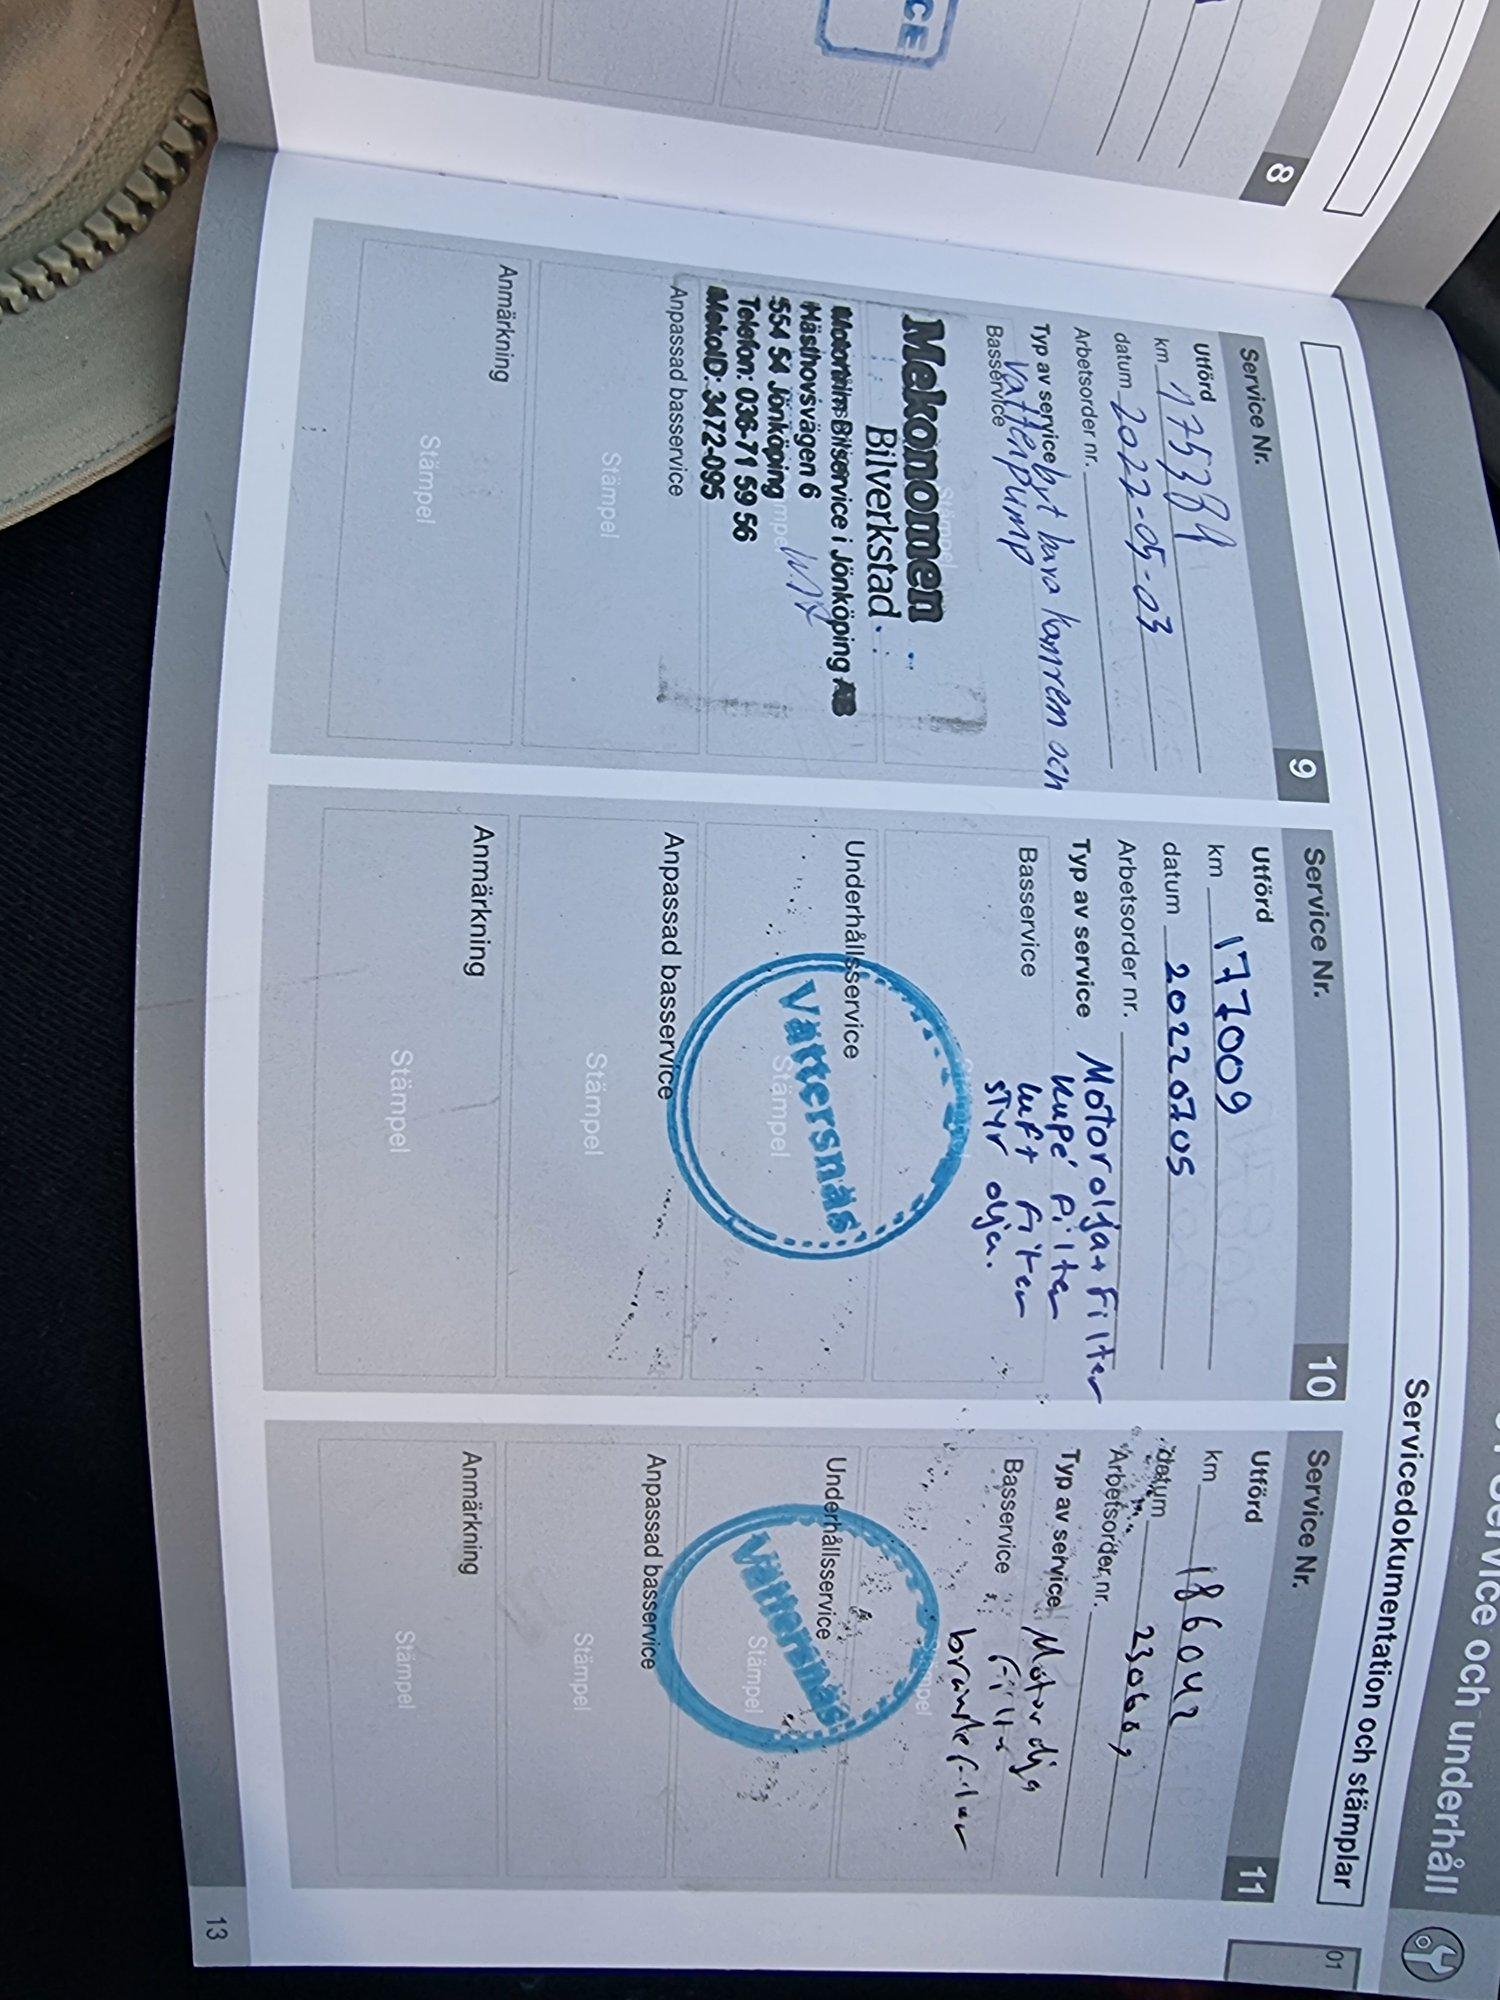 CE
8
Service och underhåll
Servicedokumentation och stämplar
01
Service Nr.
9
Utförd
km 175384
datum 2022-05-03
Arbetsorder nr.
Typ av service bytt bara kamrem och
Basservice vattenpump
Stämpel
Mekonomen
Bilverkstad
Bilservice i Jönköping AB
Hästhovsvägen 6
554 54 Jönköping
Telefon: 036-71 59 56
MekoID: 3472-095
Anpassad basservice
Stämpel
Anmärkning
Stämpel
Service Nr.
10
Utförd
km 177009
datum 20220705
Arbetsorder nr.
Typ av service Motorolja + Filter
kupé Filter
Basservice luft Filter
styr olja.
Stämpel
Underhållsservice
Vättersnäs
Stämpel
Anpassad basservice
Stämpel
Anmärkning
Stämpel
Service Nr.
11
Utförd
km 186042
datum 230609
Arbetsorder nr.
Typ av service Motor olja
Basservice Filter
bränsle Filter
Stämpel
Underhållsservice
Vättersnäs
Stämpel
Anpassad basservice
Stämpel
Anmärkning
Stämpel
13